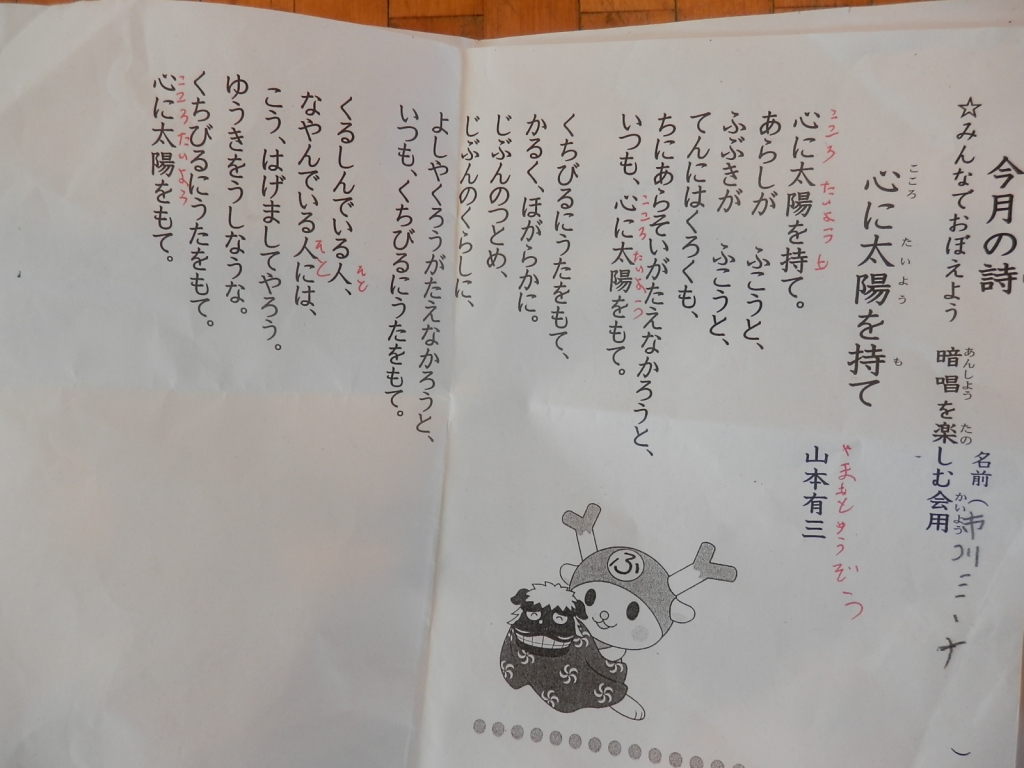 今月の詩
☆みんなでおぼえよう 暗唱を楽しむ会用
あんしよう たの かいよう
名前（市川三、ナ ）
心に太陽を持て
こころ たいよう も
山本有三
やまもとゆうぞう
心に太陽を持て。
こころ たいよう も
あらしが ふこうと、
ふぶきが ふこうと、
てんにはくろくも、
ちにあらそいがたえなかろうと、
いつも、心に太陽をもて。
こころ たいよう
くちびるにうたをもて、
かるく、ほがらかに。
じぶんのつとめ、
じぶんのくらしに、
よしやくろうがたえなかろうと、
いつも、くちびるにうたをもて。
くるしんでいる人、
ひと
なやんでいる人には、
ひと
こう、はげましてやろう。
ゆうきをうしなうな。
くちびるにうたをもて。
心に太陽をもて。
こころ たいよう
ふ